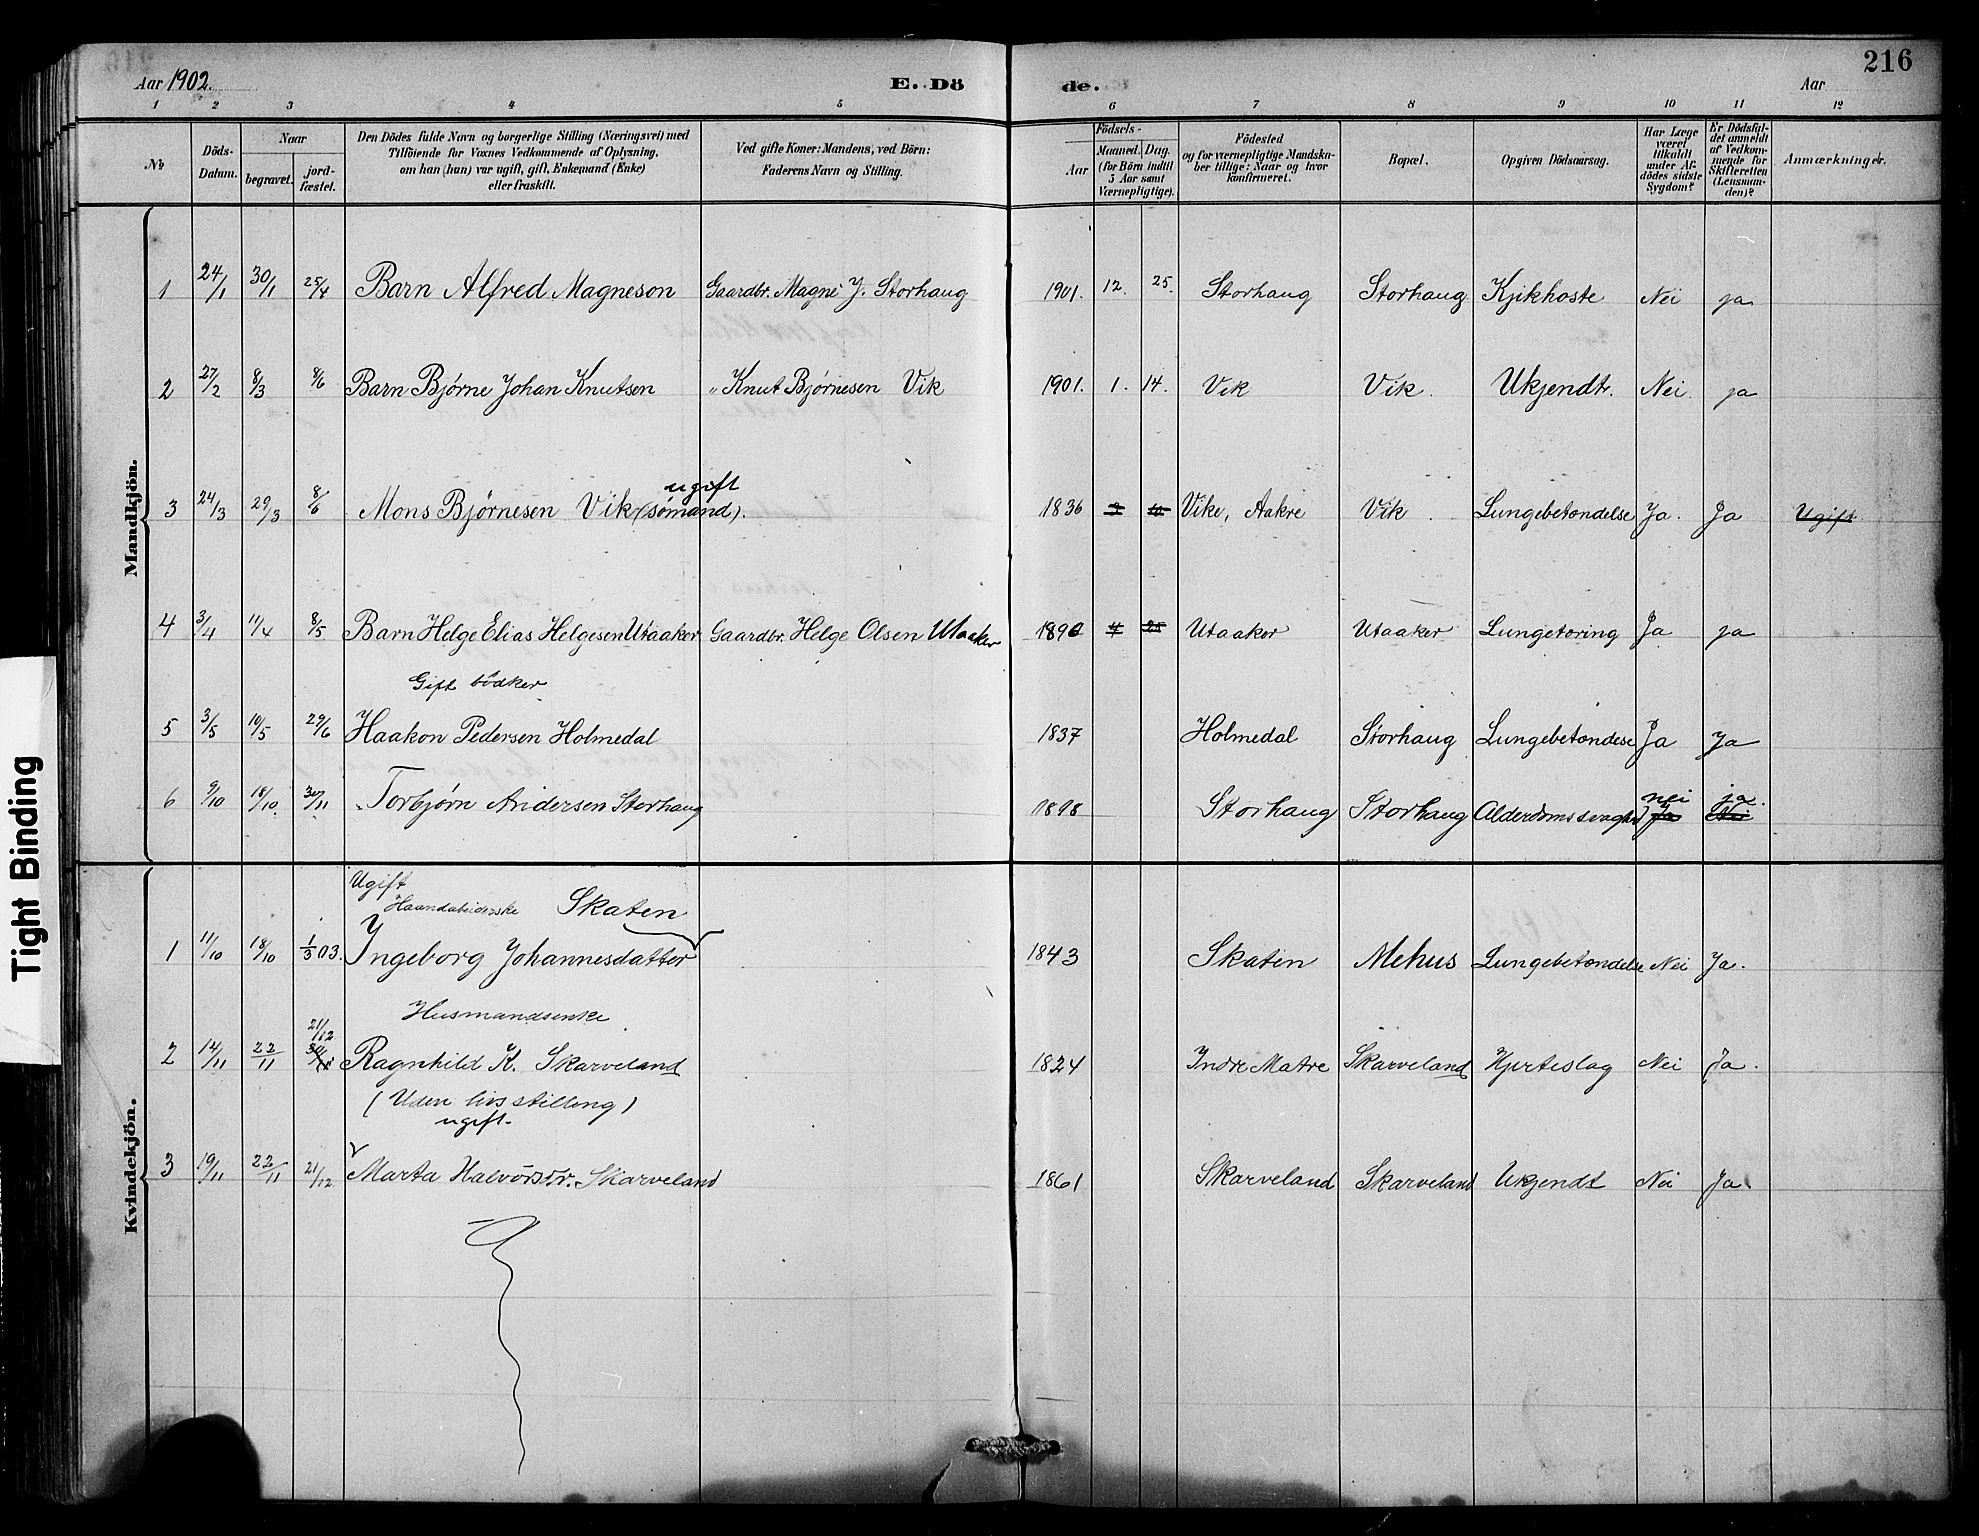 216
Aar 1902.
E. Döde.
Aar
1 2 3 4 5 6 7 8 9 10 11 12
No
Döds-Datum.
Naar
begravet.
jord-fæstet.
Den Dödes fulde Navn og borgerlige Stilling (Næringsvei) med
Tilföiende for Voxnes Vedkommende af Oplysning,
om han (hun) var ugift, gift, Enkemand (Enke)
eller fraskilt.
Ved gifte Koner: Mandens, ved Börn:
Faderens Navn og Stilling.
Födsels-
Aar
Maaned. Dag.
(for Börn indtil
5 Aar samt
Værnepligtige).
Födested
og for værnepligtige Mandska-
ber tillige: Naar og hvor
konfirmeret.
Bopæl.
Opgiven Dödsaarsag.
Har Læge
været
tilkaldt
under Af-
dödes sidste
Sygdom?
Er Dödsfal-
det anmeldt
af Vedkom-
mende for
Skifteretten
(Lensman-
den)?
Anmærkninger.
Mandkjön.
1 24/1 30/1 25/4 Barn Alfred Magneson Gaardbr. Magne J. Storhaug 1901. 12. 25. Storhaug Storhaug Kjikhoste Nei ja
2 27/2 8/3 8/6 Barn Bjørne Johan Knutsen " Knut Bjørnesen Vik 1901. 1. 14. Vik Vik. Ukjendt. Nei ja
ugift
3 24/3 29/3 8/6 Mons Bjørnesen Vik (sømand). 1836 Vike, Aakre Vik. Lungebetændelse Ja. Ja Ugift
4 3/4 11/4 8/5 Barn Helge Elias Helgesen Utaaker Gaardbr. Helge Olsen Utaaker 1890 4 25 Utaaker Utaaker Lungetæring Ja ja
Gift bödker
5 3/5 10/5 29/6 Haakon Pedersen Holmedal 1837 Holmedal Storhaug Lungebetændese Ja Ja
nei ja.
6 9/10 18/10 30/11 Torbjørn Andersen Storhaug 1898 Storhaug Storhaug Alderdomssvaghed Ja Nei
Kvindekjön.
Ugift
Haandarbeiderske Skaten
1 11/10 18/10 1/3 03. Ingeborg Johannesdatter 1843 Skaten Mehus Lungebetændelse Nei Ja.
Husmandsenke
21/12
2 14/11 22/11 Ragnhild K. Skarveland 1824 Indre Matre Skarveland Hjerteslag Nei Ja.
(Uden livsstilling)
ugift.
3 19/11 22/11 21/12 Marta Halvorsdr. Skarveland 1861 Skarveland Skarveland Ukjendt Nei Ja
Tight Binding